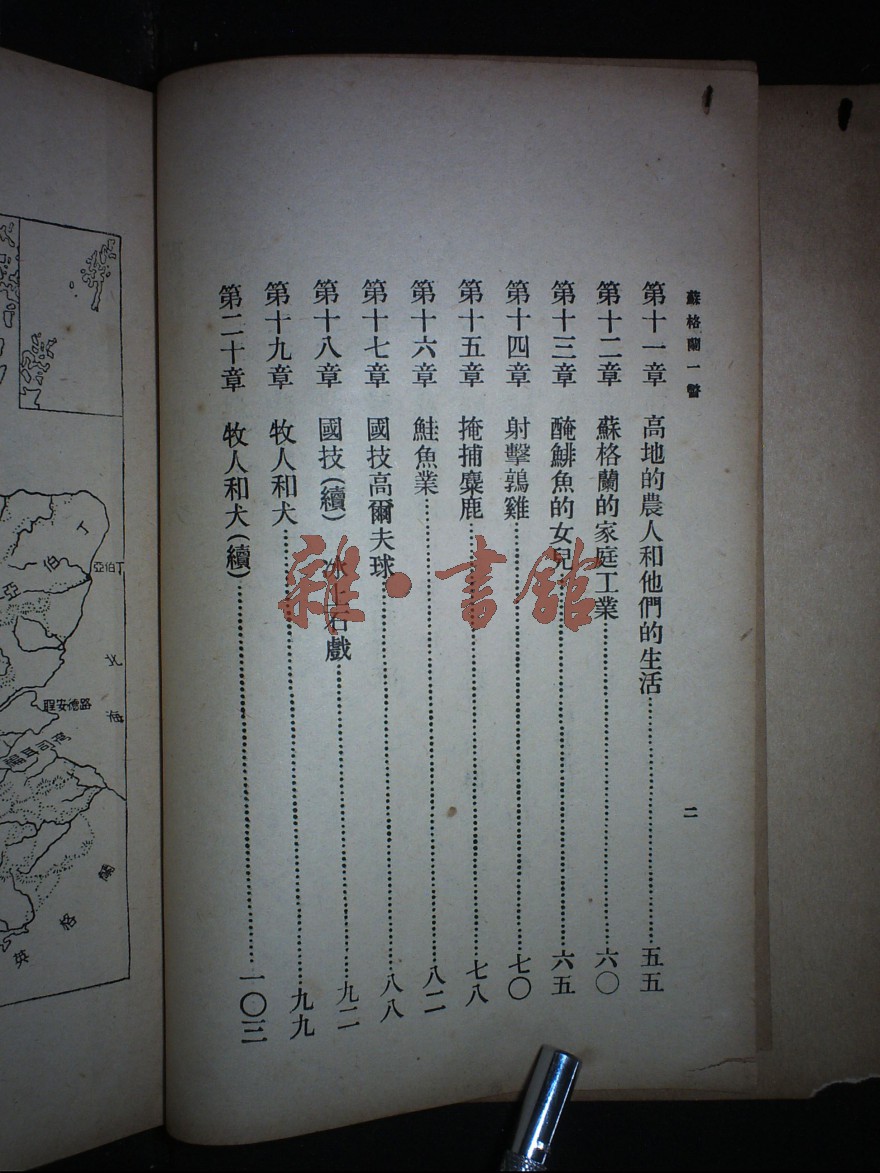 蘇格蘭一瞥
二
第十一章 高地的農人和他們的生活……五五
第十二章 蘇格蘭的家庭工業……六〇
第十三章 醃鯡魚的女兒……六五
第十四章 射擊鶉雞……七〇
第十五章 掩捕麋鹿……七八
第十六章 鮭魚業……八二
第十七章 國技高爾夫球……八八
第十八章 國技(續) 冰上石戲……九二
第十九章 牧人和犬……九九
第二十章 牧人和犬(續)……一〇三
雜·書館
丁伯亞
丁伯亞
北海
路德安聖
英格蘭